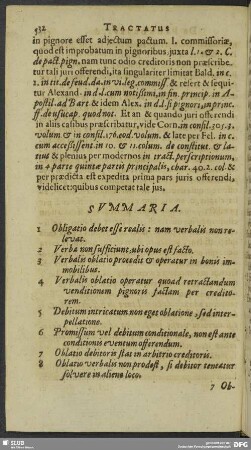 532 TRACTATUS
in pignore esset adjectum pactum. l. commissoriæ,
quod est improbatum in pignoribus juxta l. 1. & 2. C.
de pact. pign. nam tunc odio creditoris non præscribe-
tur tali juri offerendi, ita singulariter limitat Bald. in c.
1. in tit. de feud. da. in vi. leg. commiss. & refert & sequi-
tur Alexand. in d. l. cum notissimi, in fin. princip. in A-
postil. ad Bart & idem Alex. in d. l. si pignori, in princ.
ff. de usucap. quod not. Et an & quando juri offerendi
in aliis casibus præscribatur, vide Corn. in consil. 305. 4.
volum & in consil. 176. eod. volum. & late per Fel. in c.
cum accessissent. in 10. & 11. colum. de constitut. & la-
tius & plenius per modernos in tract. perscriptionum,
in 4 parte quintæ partis principalis, char. 40. 2. col &
per prædicta est expedita prima pars juris offerendi,
videlicet: quibus competat tale jus,
SUMMARIA.
1 Obligatio debet esse realis: nam verbalis non re-
levat.
2 Verba non sufficiunt, ubi opus est facto.
3 Verbalis oblatio procedit & operatur in bonis im-
mobilibus.
4 Verbalis oblatio operatur quoad retractandum
venditionem pignoris factam per credito-
rem.
5 Debitum intricatum non eget oblatione, sed inter-
pellatione.
6 Promissum vel debitum conditionale, non est ante
conditionis eventum offerendum.
7 Oblatio debitoris stat in arbitrio creditoris.
8 Oblatio verbalis non prodest, si debitor teneatur
solvere in alieno loco.
7 Ob-
SLUB
DFG